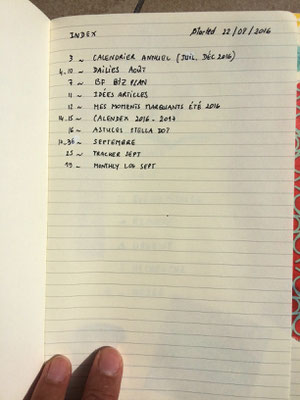 INDEX Started 22/08/2016
3 ~ CALENDRIER ANNUEL (JUIL. DÉC 2016)
4.10 ~ DAILIES AOÛT
7 ~ BF BIZ PLAN
11 ~ IDÉES ARTICLES
12 ~ MES MOMENTS MARQUANTS ÉTÉ 2016
14.15 ~ CALENDEX 2016 - 2017
16 ~ ASTUCES STELLA DOT
~ SEPTEMBRE
25 ~ TRACKER SEPT
~ MONTHLY LOG SEPT